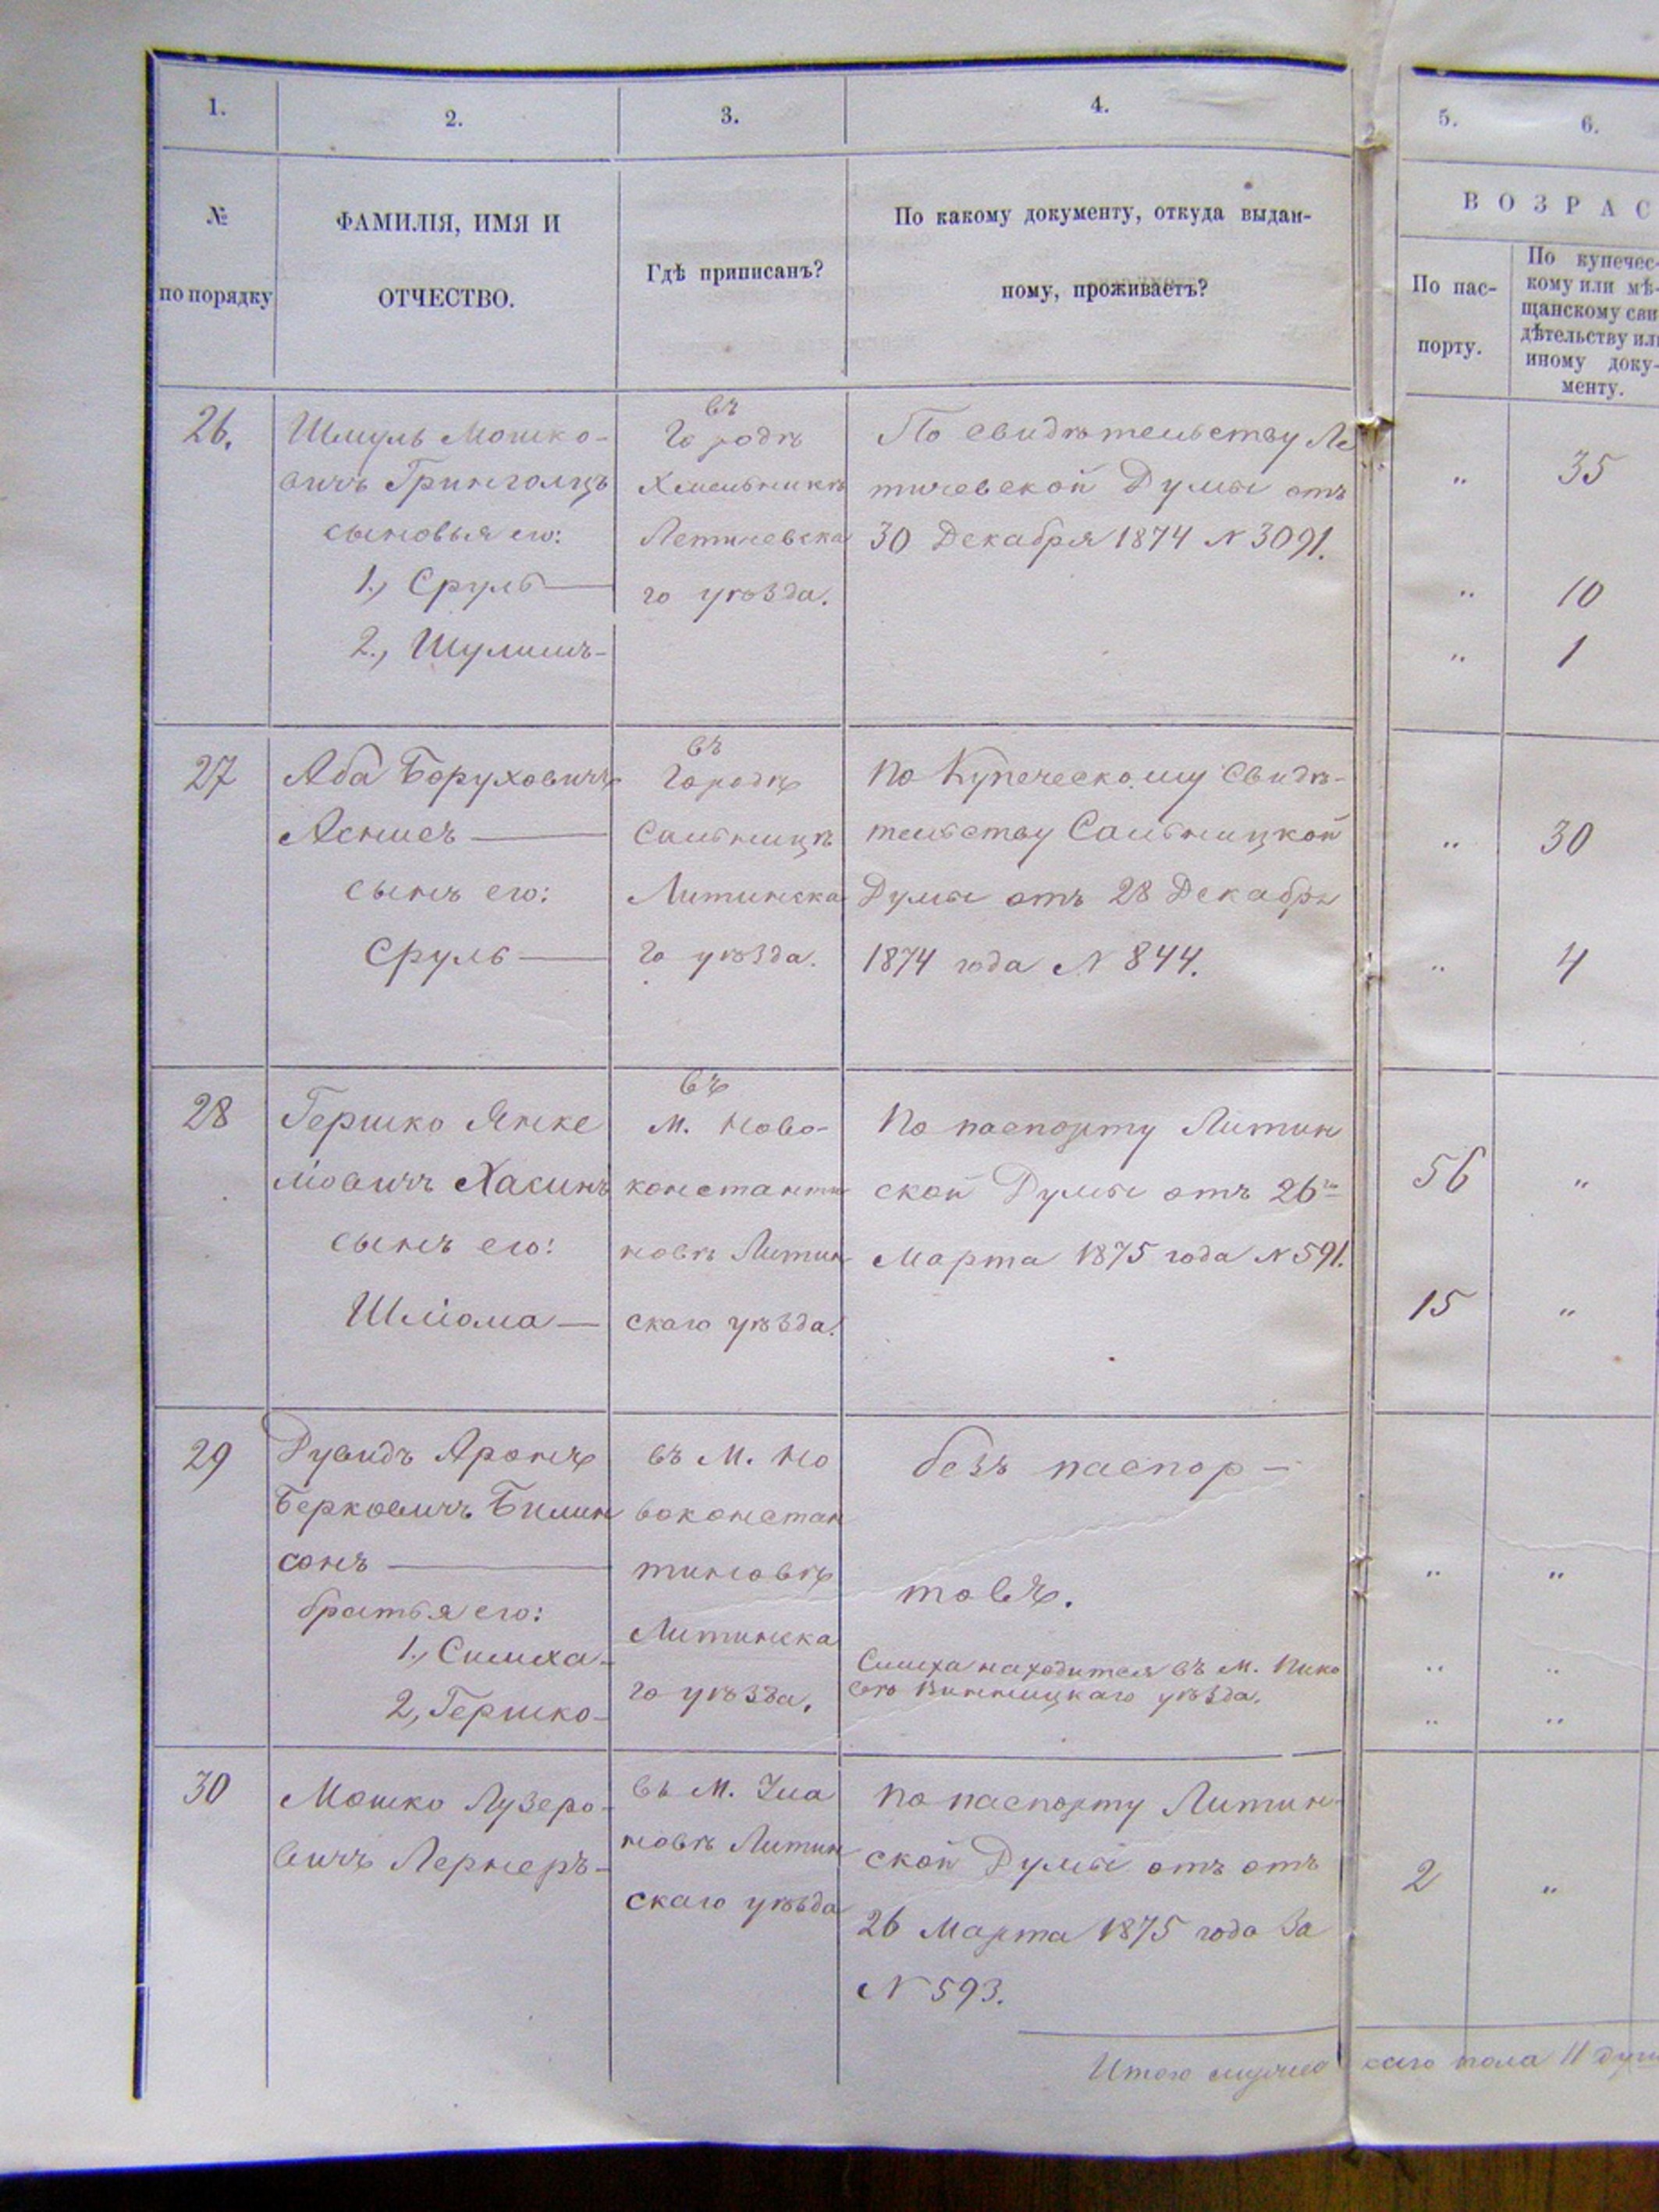 1.
2.
3.
4.
5.
6.
№
по порядку
ФАМИЛІЯ, ИМЯ И
ОТЧЕСТВО.
Гдѣ приписанъ?
По какому документу, откуда выдан-
ному, проживаетъ?
ВОЗРАС
По пас-
порту.
По купечес-
кому или мѣ-
щанскому сви
дѣтельству или
иному доку-
менту.
26.
Шмуль Мошко-
вичъ Гринголцъ
сыновья его:
1., Сруль
2., Шулимъ-
въ
Городѣ
Хмельникѣ
Летичевска
го уѣзда.
По свидѣтельству Ле
тичевской Думы отъ
30 Декабря 1874 N 3091.
" 35
" 10
" 1
27
Аба Боруховичъ
Аснисъ
сынъ его:
Сруль
въ
Городѣ
Сальницѣ
Литинска
го уѣзда.
По Купеческому Свидѣ-
тельству Сальницкой
Думы отъ 28 Декабря
1874 года N 844.
" 30
" 4
28
Гершко Янке
ліовичъ Хасинъ
сынъ его:
Шліома
въ
М. Ново-
константи
новѣ Литин
скаго уѣзда.
По паспорту Литин
ской Думы отъ 26го
Марта 1875 года N 591.
56 "
15 "
29
Дувидъ Аронъ
Берковичъ Билин
сонъ
братья его:
1., Симха-
2, Гершко-
въ М. Но
воконстан
тиновѣ
Литинска
го уѣзда.
безъ паспор-
товъ.
Симха находится въ М. Пико
вѣ Винницкаго уѣзда.
" "
" "
" "
30
Мошко Лузеро-
вичъ Лернеръ-
въ М.
новѣ Литин
скаго уѣзда
По паспорту Литин-
ской Думы отъ отъ
26 Марта 1875 года За
N 593.
2 "
Итого мужес каго пола 11 душ